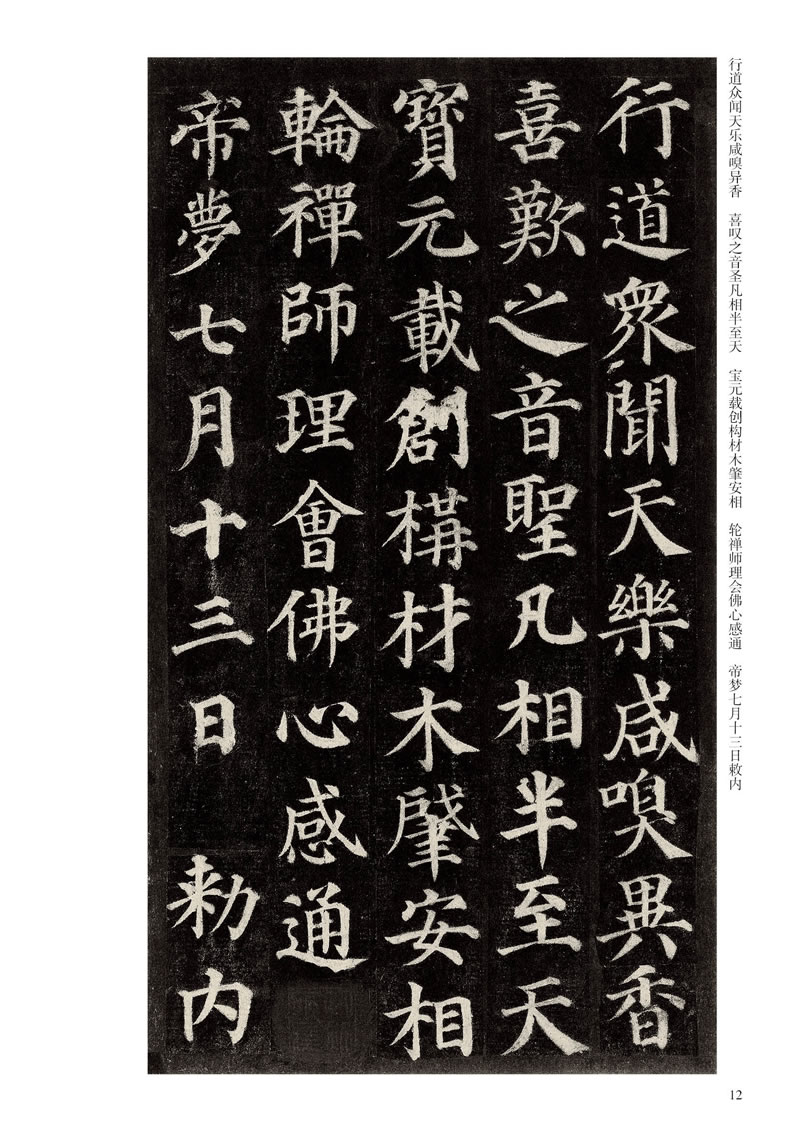 行道众闻天乐咸嗅异香　喜叹之音圣凡相半至天　宝元载创构材木肇安相　轮禅师理会佛心感通　帝梦七月十三日敕内
行道衆聞天樂咸嗅異香
喜歎之音聖凡相半至天
寶元載創構材木肇安相
輪禪師理會佛心感通
帝夢七月十三日　勑内
12